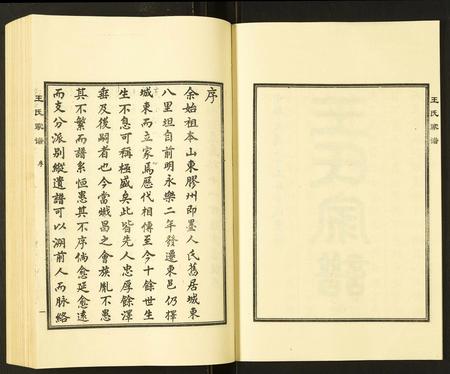 王氏家谱
序
余始祖本山東膠州即墨人氏舊居城東
八里坦自前明永樂二年發遷東邑仍擇
城東而立家焉歷代相傳至今十餘世生
生不息可稱極盛矣此皆先人忠厚餘澤
垂及後嗣者也今當熾昌之會族胤不患
其不繁而譜系恒患其不序倘愈延愈遠
而支分派别縱遺譜可以溯前人而脉絡
王氏家谱
序
一